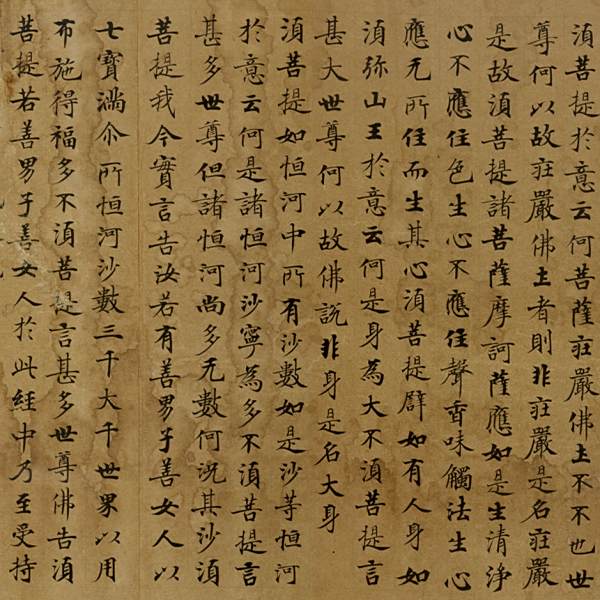 湏菩提於意云何菩薩莊嚴佛土不不也世
尊何以故莊嚴佛土者則非莊嚴是名莊嚴
是故湏菩提諸菩薩摩訶薩應如是生清淨
心不應住色生心不應住聲香味觸法生心
應无所住而生其心湏菩提辟如有人身如
湏弥山王於意云何是身為大不湏菩提言
甚大世尊何以故佛說非身是名大身
湏菩提如恒河中所有沙數如是沙等恒河
於意云何是諸恒河沙寧為多不湏菩提言
甚多世尊但諸恒河尚多无數何況其沙湏
菩提我今實言告汝若有善男子善女人以
七寶滿尒所恒河沙數三千大千世界以用
布施得福多不湏菩提言甚多世尊佛告湏
菩提若善男子善女人於此經中乃至受持